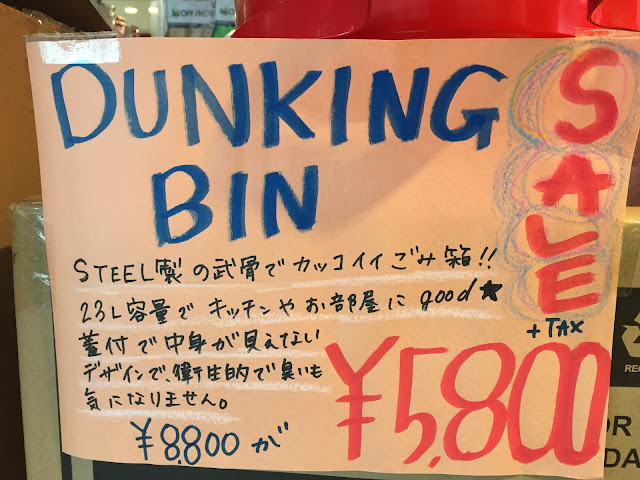 DUNKING
BIN
SALE
STEEL製の武骨でカッコイイごみ箱!!
23L容量でキッチンやお部屋にgood★
蓋付で中身が見えない
デザインで、衛生的で臭いも
気になりません。
+TAX
¥8,800が
¥5,800